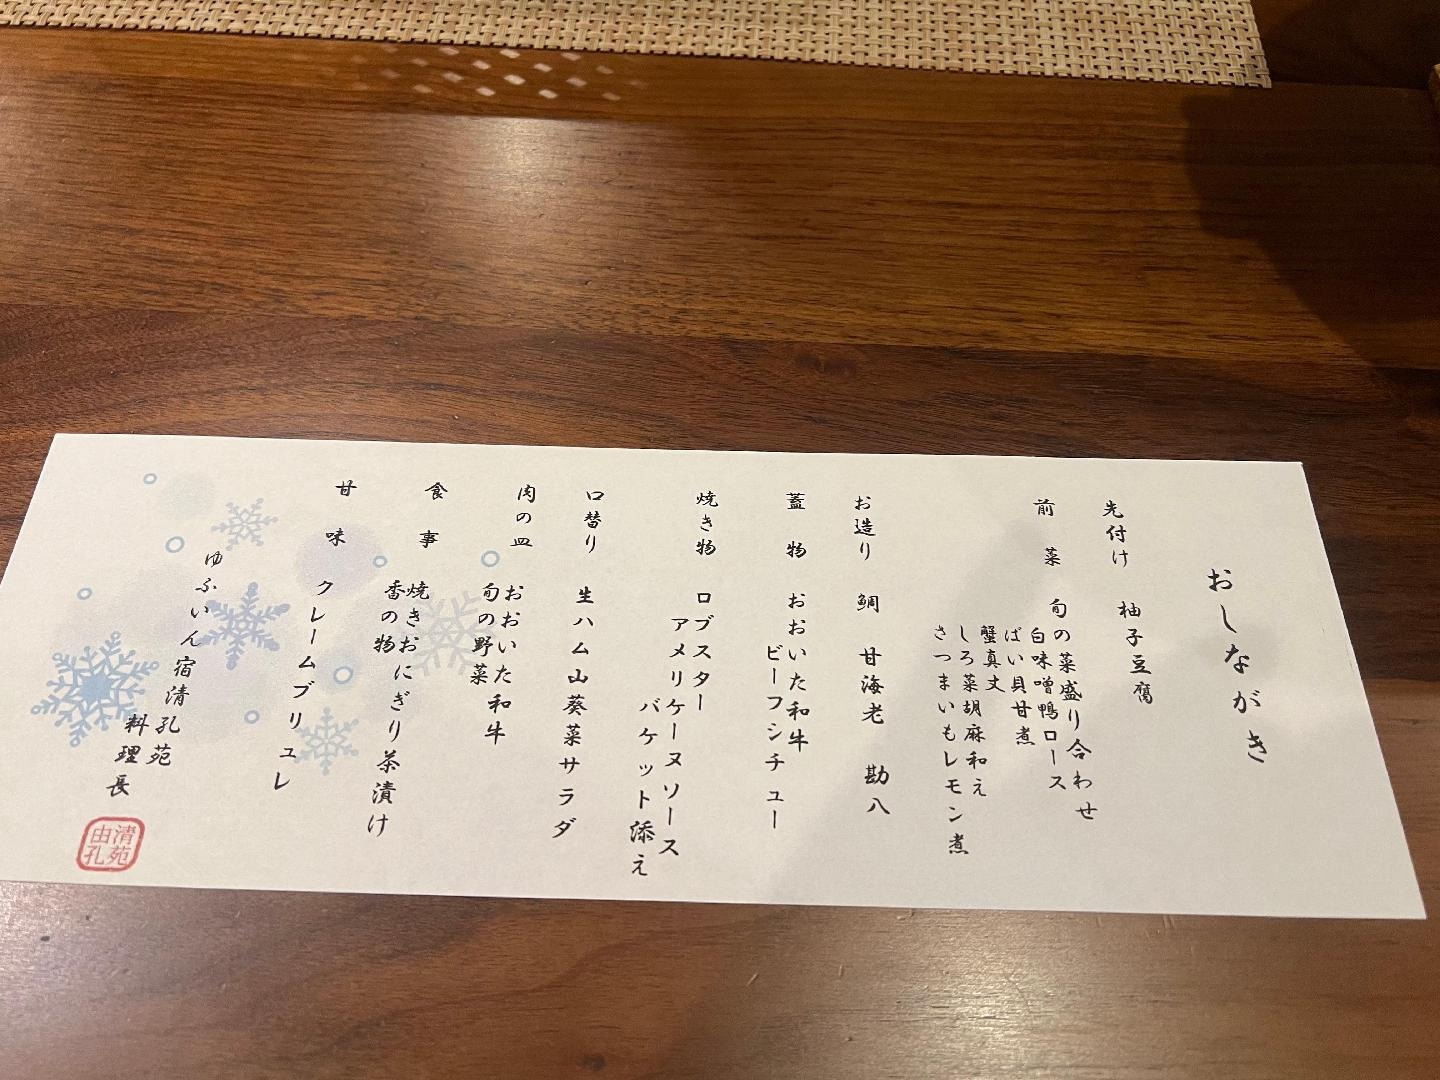 おしながき
先付け 柚子豆腐
前菜 旬の菜盛り合わせ
白味噌鴨ロース
ばい貝甘煮
蟹真丈
しろ菜胡麻和え
さつまいもレモン煮
お造り 鯛 甘海老 勘八
蓋物 おおいた和牛
ビーフシチュー
焼き物 ロブスター
アメリケーヌソース
バケット添え
口替り 生ハム山葵菜サラダ
肉の皿 おおいた和牛
旬の野菜
食事 焼きおにぎり茶漬け
香の物
甘味 クレームブリュレ
ゆふいん宿清孔苑
料理長
清苑
由孔